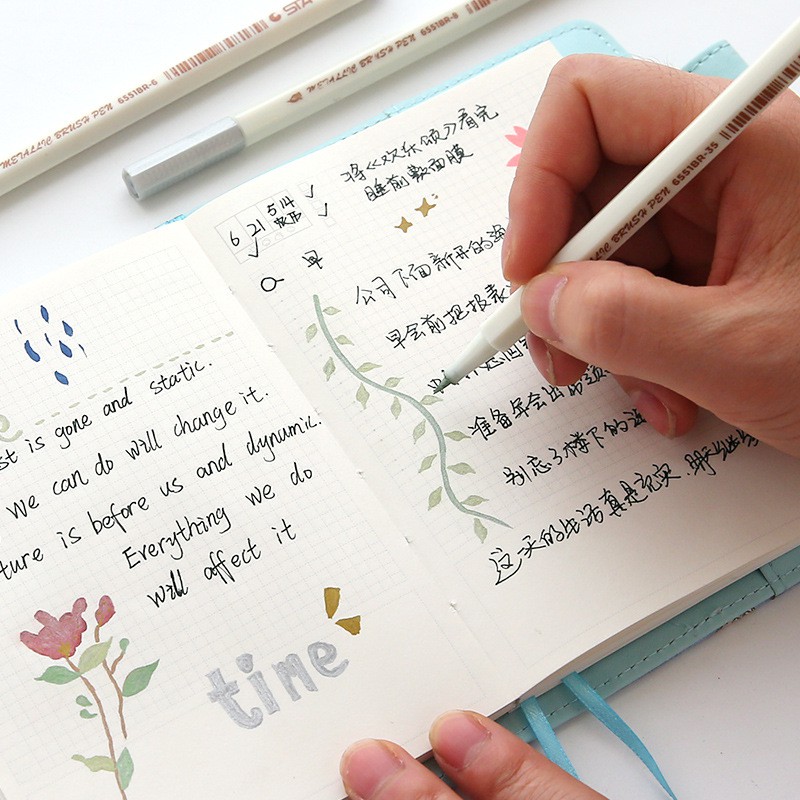 METALLIC BRUSH PEN 6551BR-6 STA
METALLIC BRUSH PEN
st is gone and static.
We can do will change it.
ture is before us and dynamic.
Everything we do
will affect it
time
6 21 514
早
将《欢乐颂》看完
睡前敷面膜
公司下面新开的
早会前把报表
准备年会出节
别忘了楼下的
这一天的生活真是充实,明天继续
METALLIC BRUSH PEN 6551BR-35